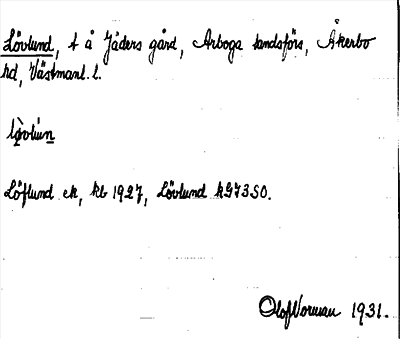 Lövlund, t å Jäders gård, Arboga landsförs, Åkerbo
hd, Västmanl. l.
lòvlúun
Löflund ek, kb 1927, Lövlund kG73SO.
Olof Norman 1931.